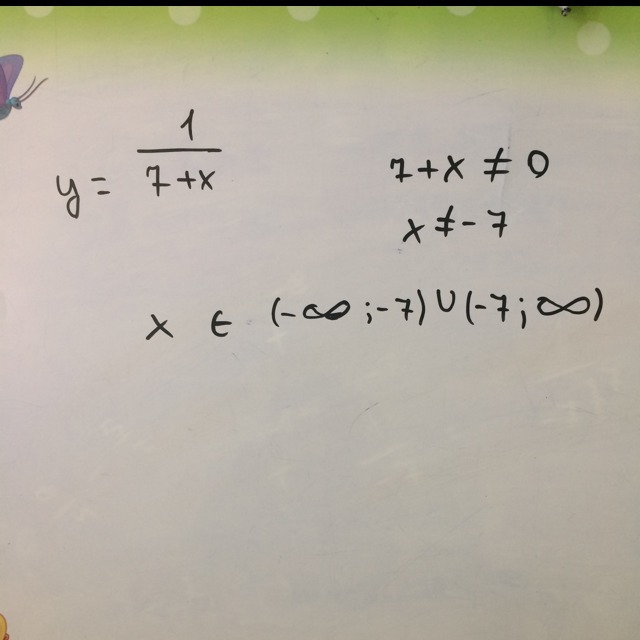 y = 1/(7+x)
7+x ≠ 0
x ≠ -7
x ∈ (-∞;-7)∪(-7;∞)